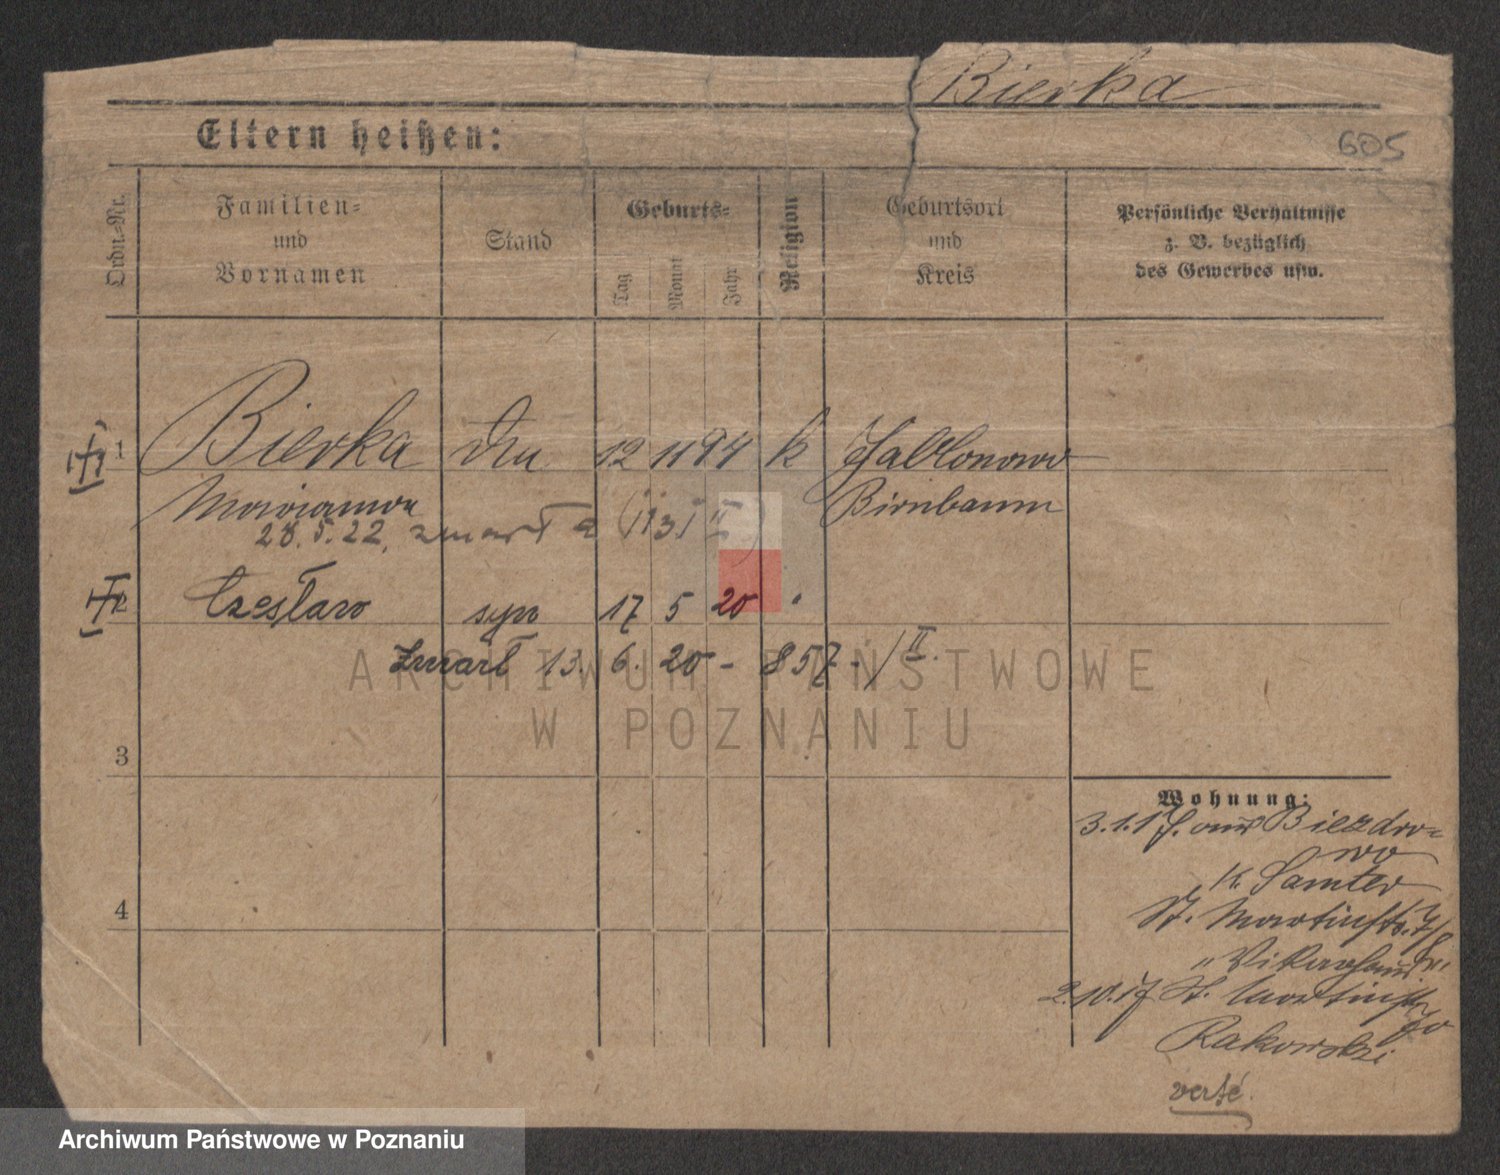 Bierka
Eltern heißen:
605
Ordn.-Nr.
Familien-
und
Vornamen
Stand
Geburts-
Tag
Monat
Jahr
Religion
Geburtsort
und
Kreis
Persönliche Verhältnisse
z. B. bezüglich
des Gewerbes usw.
1 Bierka 12 11 94 k Jablonowo
Marianna Birnbaum
28.5.22, zmarła
2 Czesław syn 17 5 20
Zmarł 13. 6. 20 - 857 - / II.
ARCHIWUM PAŃSTWOWE
W POZNANIU
3
4
Wohnung:
3.1.17. aus Biezdro-
wo
K. Samter
St. Martinstr. 7/8
2.10.17 St. Martinstr
Rakowski
verte.
Archiwum Państwowe w Poznaniu